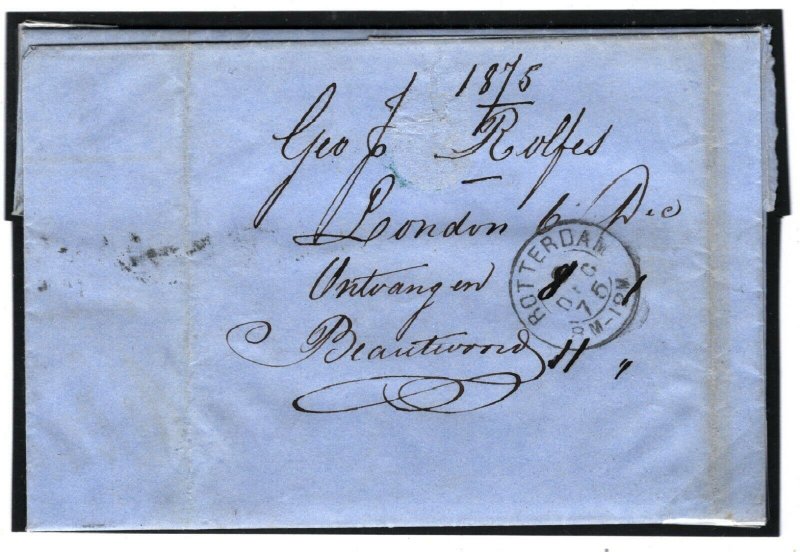 1875
Geo J Rolfes
London 6 Dec
Ontvangen 8 "
Beantwoord 11 "
ROTTERDAM
DEC
75
M-10M